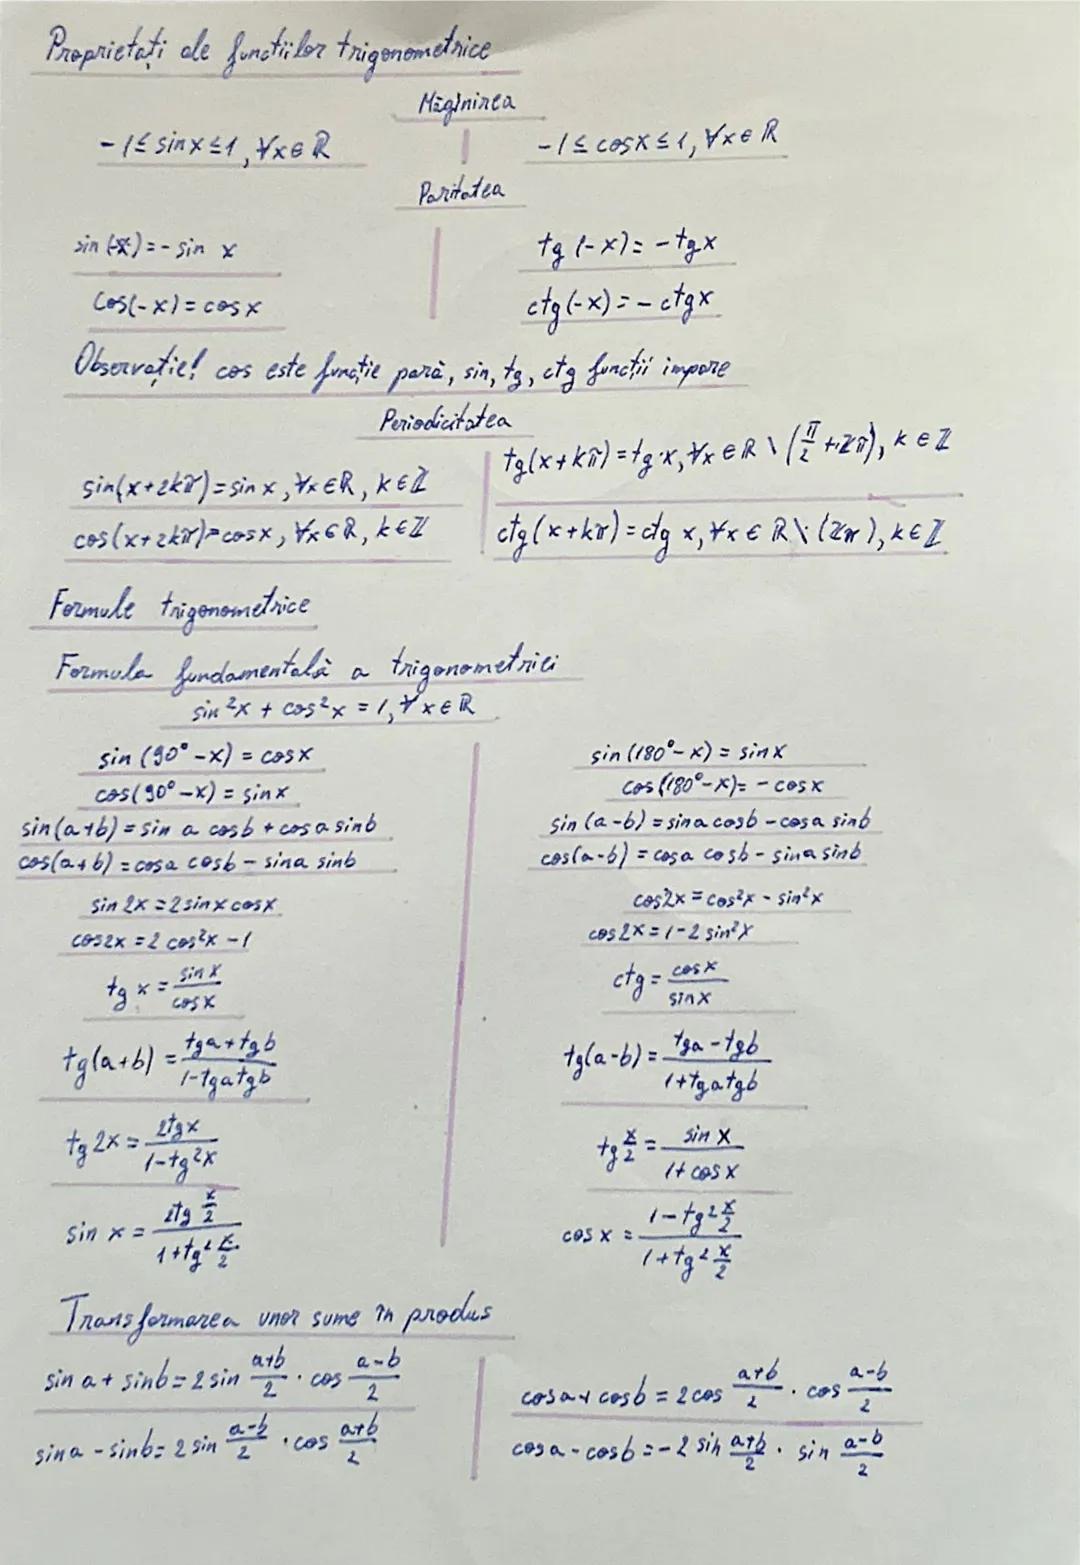 Proprietați ale funcțiilor trigonometrice
Mărginirea
-1≤ sinx ≤1, ∀x∈ℝ
-1≤ cosx ≤1, ∀x∈ℝ
Paritatea
sin(-x)=- sin x
cos(-x)=cosx
tg(-x)=-tgx
ctg(-x)=-ctgx
Observație! cos este funcție pară, sin, tg, ctg funcții impare
Periodicitatea
sin(x+2kπ)=sinx, ∀x∈ℝ, k∈ℤ
cos(x+2kπ)=cosx, ∀x∈ℝ, k∈ℤ
tg(x+kπ)=tg x, ∀x∈ℝ \ (π/2+ℤπ), k∈ℤ
ctg(x+kπ)=ctg x, ∀x∈ℝ \ (ℤπ), k∈ℤ
Formule trigonometrice
Formula fundamentală a trigonometriei
sin²x + cos²x = 1, ∀x∈ℝ
sin(90°-x) = cosx
cos(90°-x) = sinx
sin(a+b)=sin a cosb + cosa sinb
cos(a+b)=cosa cosb - sina sinb
sin2x=2sinxcosx
cos2x=2cos²x-1
tg x = sinx/cosx
tg(a+b) = tga+tgb/1-tgatgb
tg2x = 2tgx/1-tg²x
sin x = 2tg x/2/1+tg² x/2
sin(180°-x) = sinx
cos(180°-x)= -cosx
sin(a-b)=sinacosb-cosa sinb
cos(a-b)=cosa cosb-sinasinb
cos2x=cos²x-sin²x
cos2x=1-2sin²x
ctg = cosx/sinx
tg(a-b)= tga-tgb/1+tgatgb
tg x/2 = sinx/1+cosx
cosx = 1-tg² x/2/1+tg² x/2
Transformarea unor sume în produs
sin a+ sinb=2sin a+b/2 · cos a-b/2
sina-sinb=2sin a-b/2 · cos a+b/2
cosa+cosb=2cos a+b/2 · cos a-b/2
cosa-cosb=-2sin a+b/2 · sin a-b/2